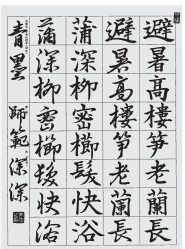 避暑高樓笋老蘭長
避暑高樓笋老蘭長
蒲深柳密櫛髮快浴
蒲深柳密櫛髮快浴
青墨
師範